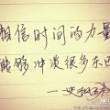 相信时间的力量
能够冲淡很多东西